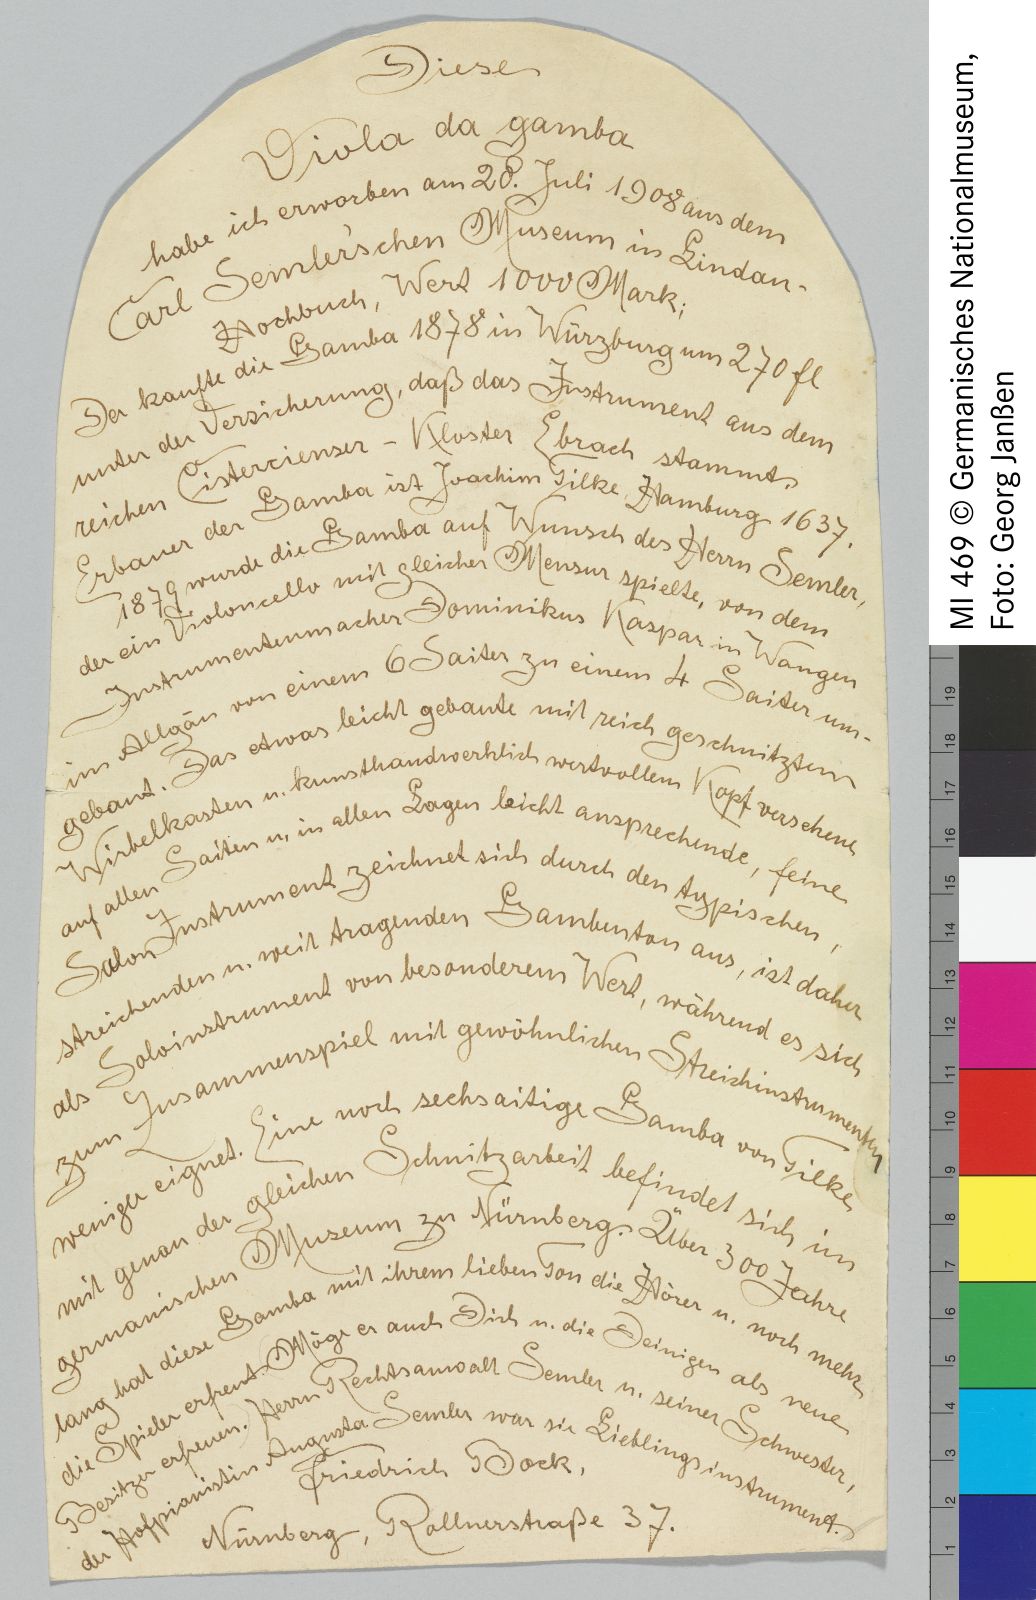 Diese
Viola da gamba
habe ich erworben am 28. Juli 1908 aus dem
Carl Semler'schen Museum in Lindau-
Hochbuch, Wert 1000 Mark;
Der kaufte die Gamba 1878 in Würzburg um 270 fl
unter der Versicherung, daß das Instrument aus dem
reichen Cistercienser-Kloster Ebrach stammt.
Erbauer der Gamba ist Joachim Tilke, Hamburg 1637.
1879 wurde die Gamba auf Wunsch des Herrn Semler,
der ein Violoncello mit gleicher Mensur spielte, von dem
Instrumentenmacher Dominikus Kaspar in Wangen
im Allgäu von einem 6 Saiter zu einem 4 Saiter um-
gebaut. Das etwas leicht gebaute mit reich geschnitztem
Wirbelkasten u. kunsthandwerklich wertvollem Kopf versehene
auf allen Saiten u. in allen Lagen leicht ansprechende, feine
Salon Instrument zeichnet sich durch den typischen,
streichenden u. weit tragenden Gambenton aus, ist daher
als Soloinstrument von besonderem Wert, während es sich
zum Zusammenspiel mit gewöhnlichen Streichinstrumenten
weniger eignet. Eine noch sechsaitige Gamba von Tilke
mit genau der gleichen Schnitzarbeit befindet sich im
germanischen Museum zu Nürnberg. Über 300 Jahre
lang hat diese Gamba mit ihrem lieben Ton die Hörer u. noch mehr
die Spieler erfreut. Möge er auch Dich u. die Deinigen als neue
Besitzer erfreuen. Herrn Rechtsanwalt Semler u. seiner Schwester,
der Hofpianistin Augusta Semler war sie Lieblingsinstrument.
Friedrich Bock,
Nürnberg, Rollnerstraße 37.
MI 469 © Germanisches Nationalmuseum,
Foto: Georg Janßen
19
18
17
16
15
14
13
12
11
10
9
8
7
6
5
4
3
2
1